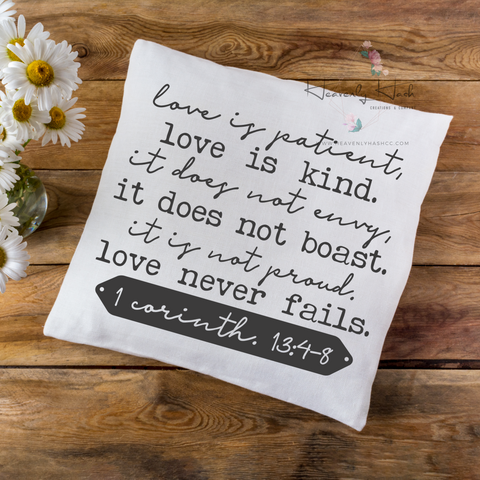 Heavenly Hash
CREATIONS & CUSTOMS
WWW.HEAVENLYHASHCC.COM
love is patient,
love is kind.
it does not envy,
it does not boast.
it is not proud.
love never fails.
1 corinth. 13:4-8